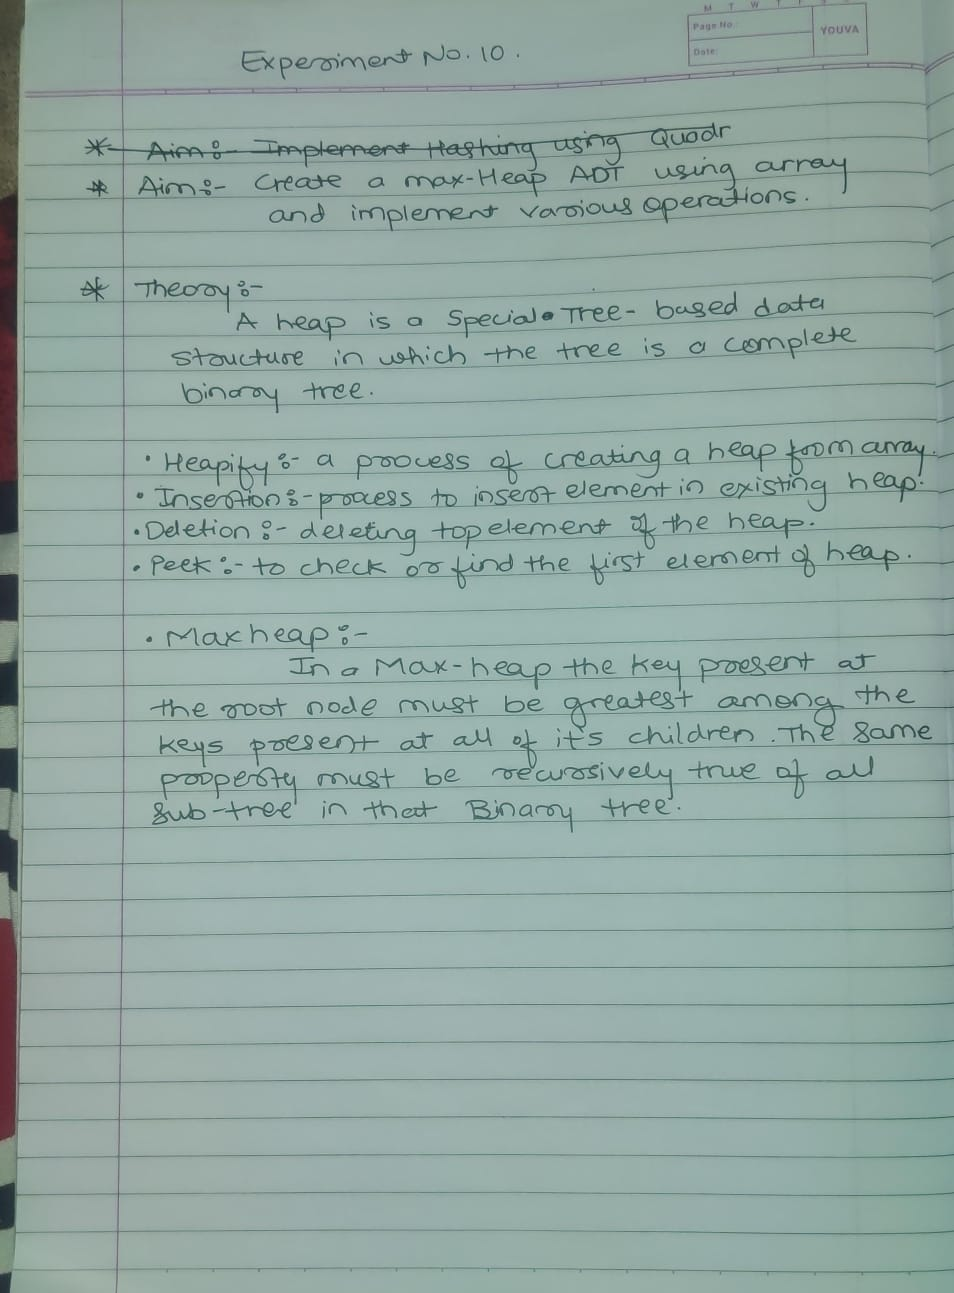 M T W T F S
Page No.:
YOUVA
Date:
Experiment No. 10.
* Aim:- Implement Hashing using Quadr
* Aim:- Create a max-Heap ADT using array
and implement various operations.
* Theory:-
A heap is a Special Tree-based data
structure in which the tree is a complete
binary tree.
• Heapify:- a process of creating a heap from array.
• Insertion:- process to insert element in existing heap.
• Deletion:- deleting top element of the heap.
• Peek:- to check or find the first element of heap.
• Max heap:-
In a Max-heap the key present at
the root node must be greatest among the
keys present at all of it's children. The same
property must be recursively true of all
sub-tree in that Binary tree.